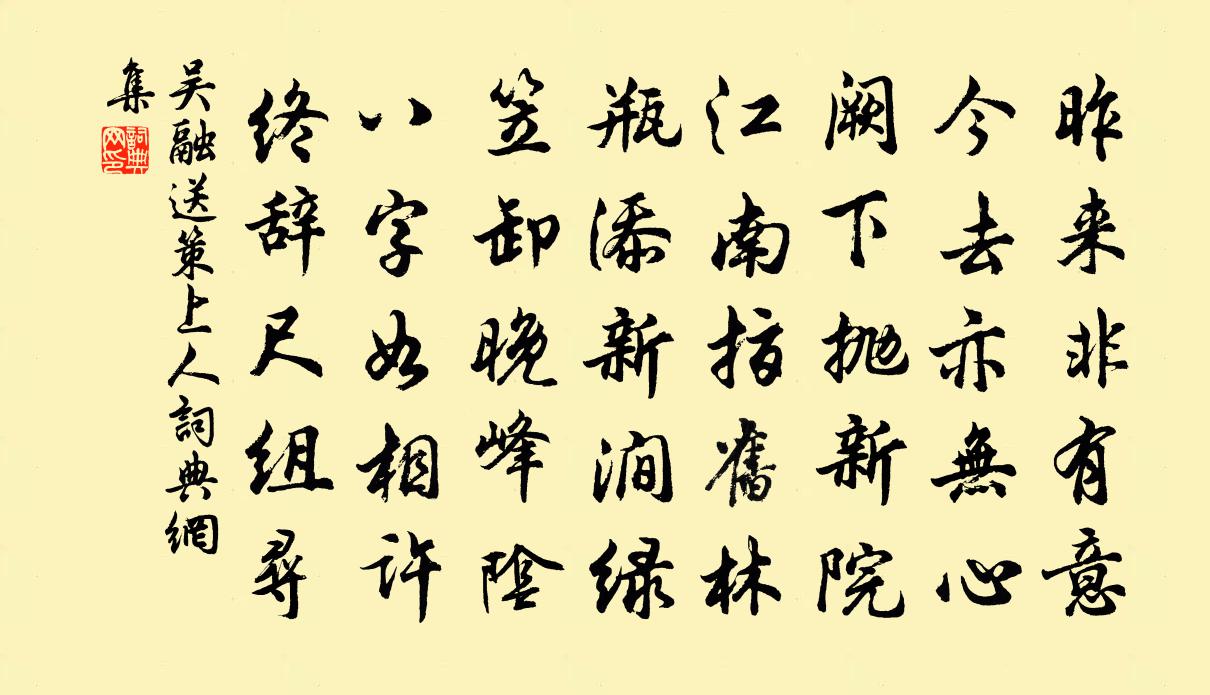 昨来非有意
今去亦無心
阙下抛新院
江南指舊林
瓶添新涧绿
笠卸晚峰陰
八字如相许
终辞尺组尋
吴融送策上人詞典網
集
詞典网印